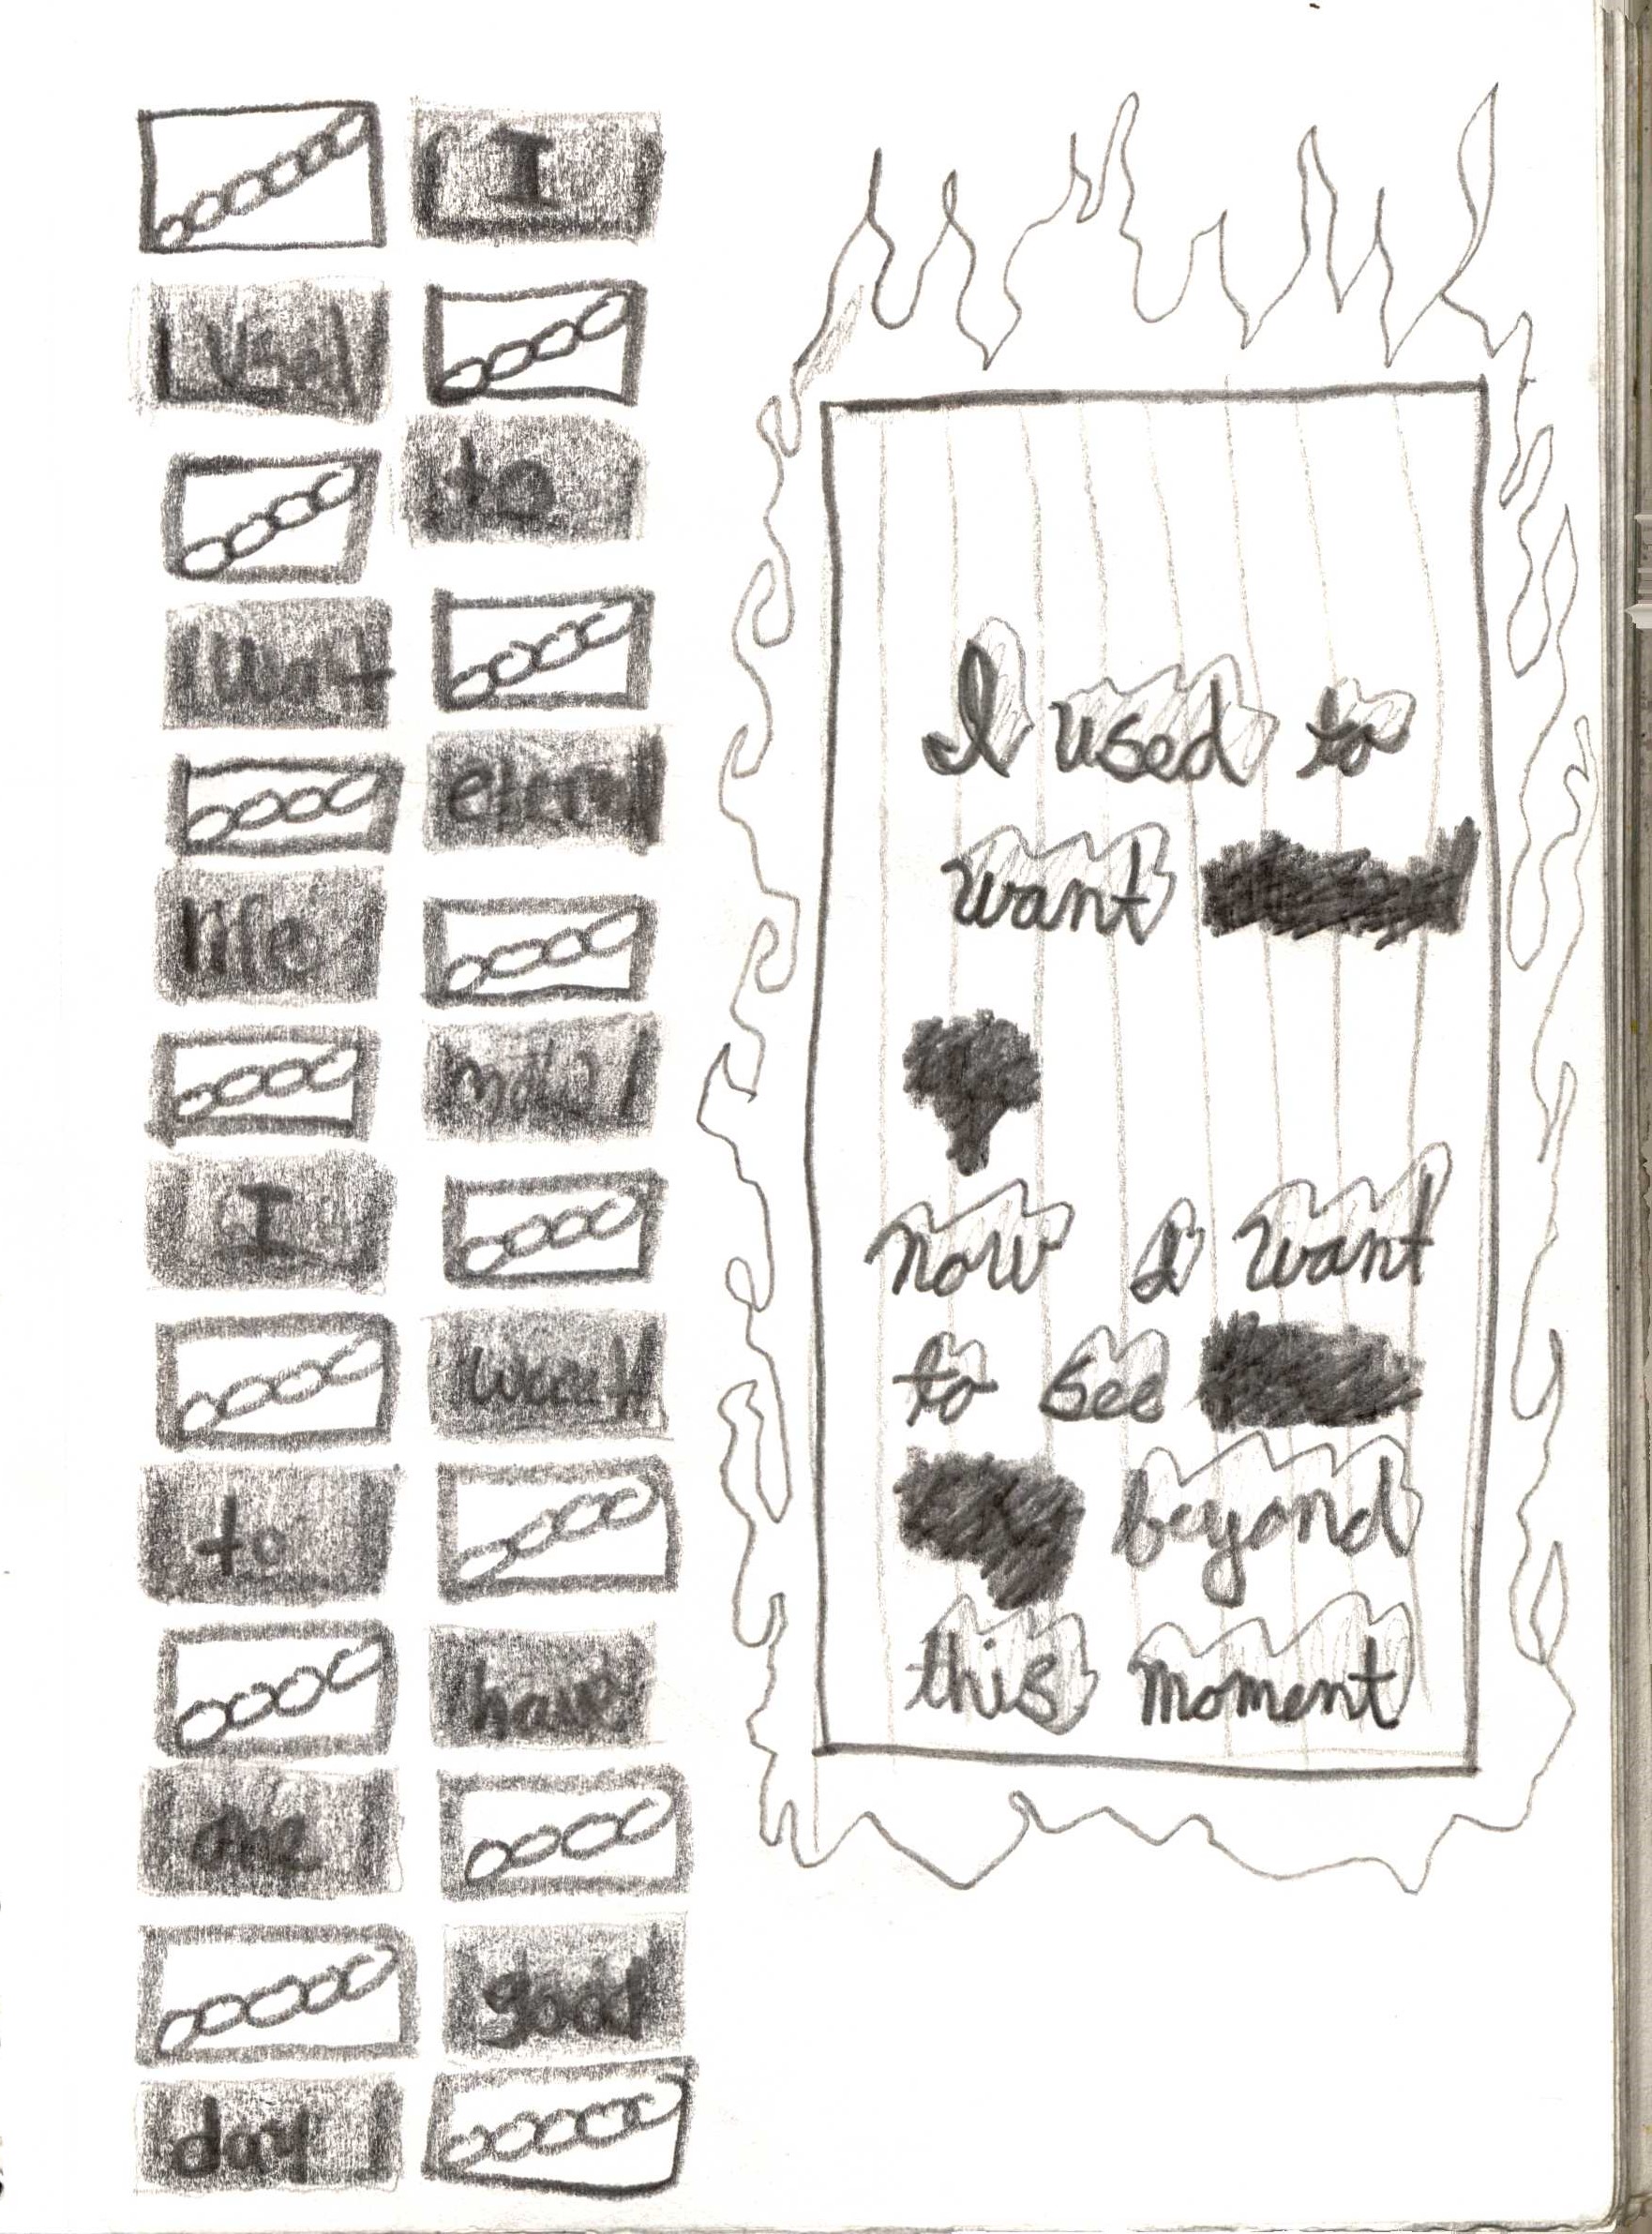 I
used
to
want
eternal
life
now
I
want
to
have
one
good
day
I used to
want
now I want
to see
beyond
this moment